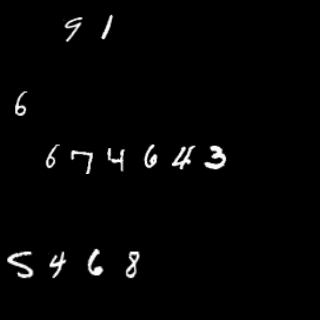 9 1
6
6 7 4 6 4 3
5 4 6 8